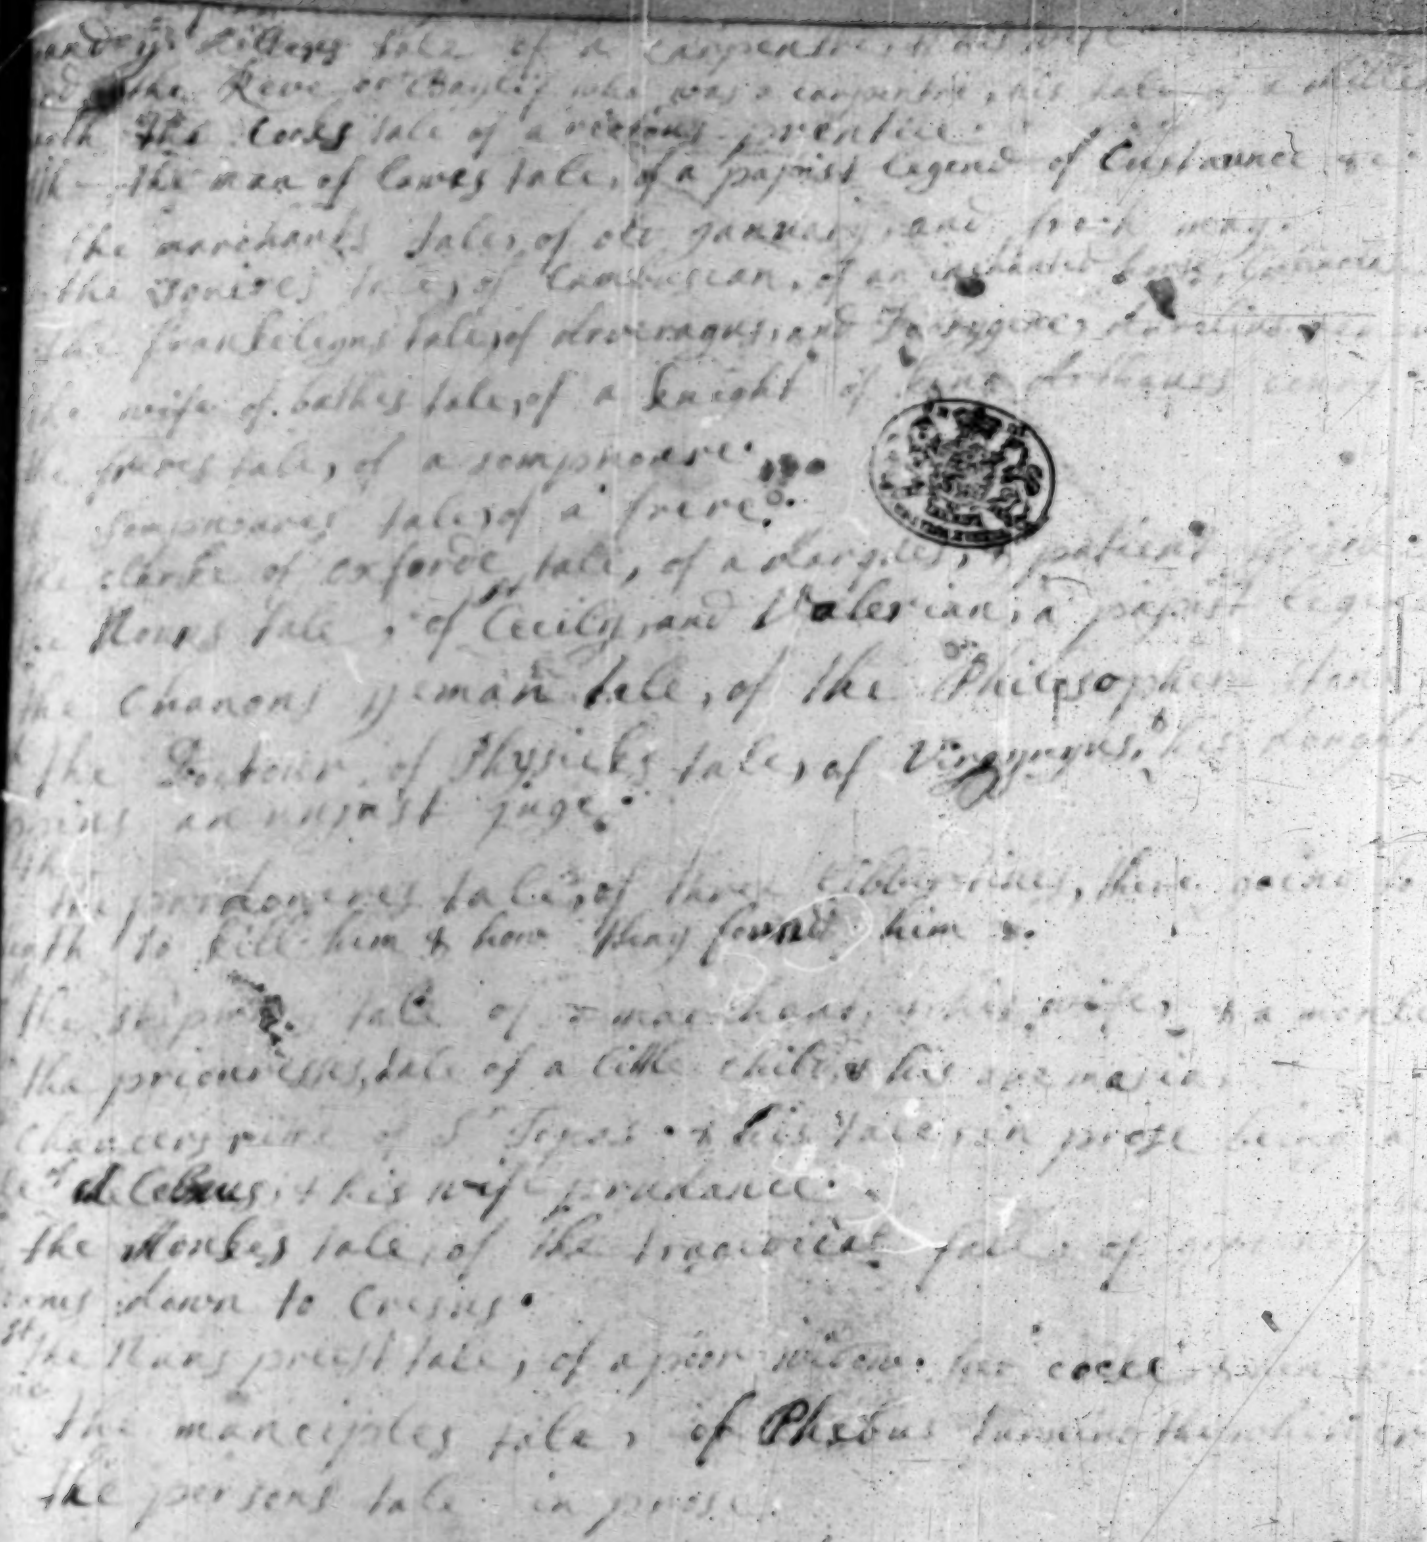 and yᵉ Millers tale of a carpenter, & his wife
the Reve or Baylif who was a carpenter, his tale of a Mille
the Cooks tale of a vicious prentice.
the man of lawes tale, of a papist legend of Custaunce &c.
the marchants tale, of old January, and fresh may.
the squires tale, of Cambuscan, of an inchanted horse,
the frankeleyns tale, of Arveragus, and Dorygene,
the wife of bathes tale, of a knight of king Arthaurs
the freres tale, of a sompnoure.
sompnoures tale, of a frere.
the clarke of oxforde tale, of a & patient
Nouns tale, of Sᵗ Cecily, and Valerian, a papist lege
the Chanons yeman tale, of the Philosophers
the Doctour of Physicks tale, of Virgynyus, his
an unjust juge.
the pardoneres tale, of three libbertines, there going to
to kill him & how thay found him &.
the shipmans tale of a marchant, & his wife, & a monke
the priouresses, tale of a little child, & his
Chaucers rime of Sʳ Topas. & his tale, in prose being a
Melebeus, & his wife prudance.
the Monkes tale, of the tragicical fall, of
down to Cresus.
the Nuns preist tale, of a poor widow. her cocke
the manciples tale, of Phebus turning the
the persons tale in prose.